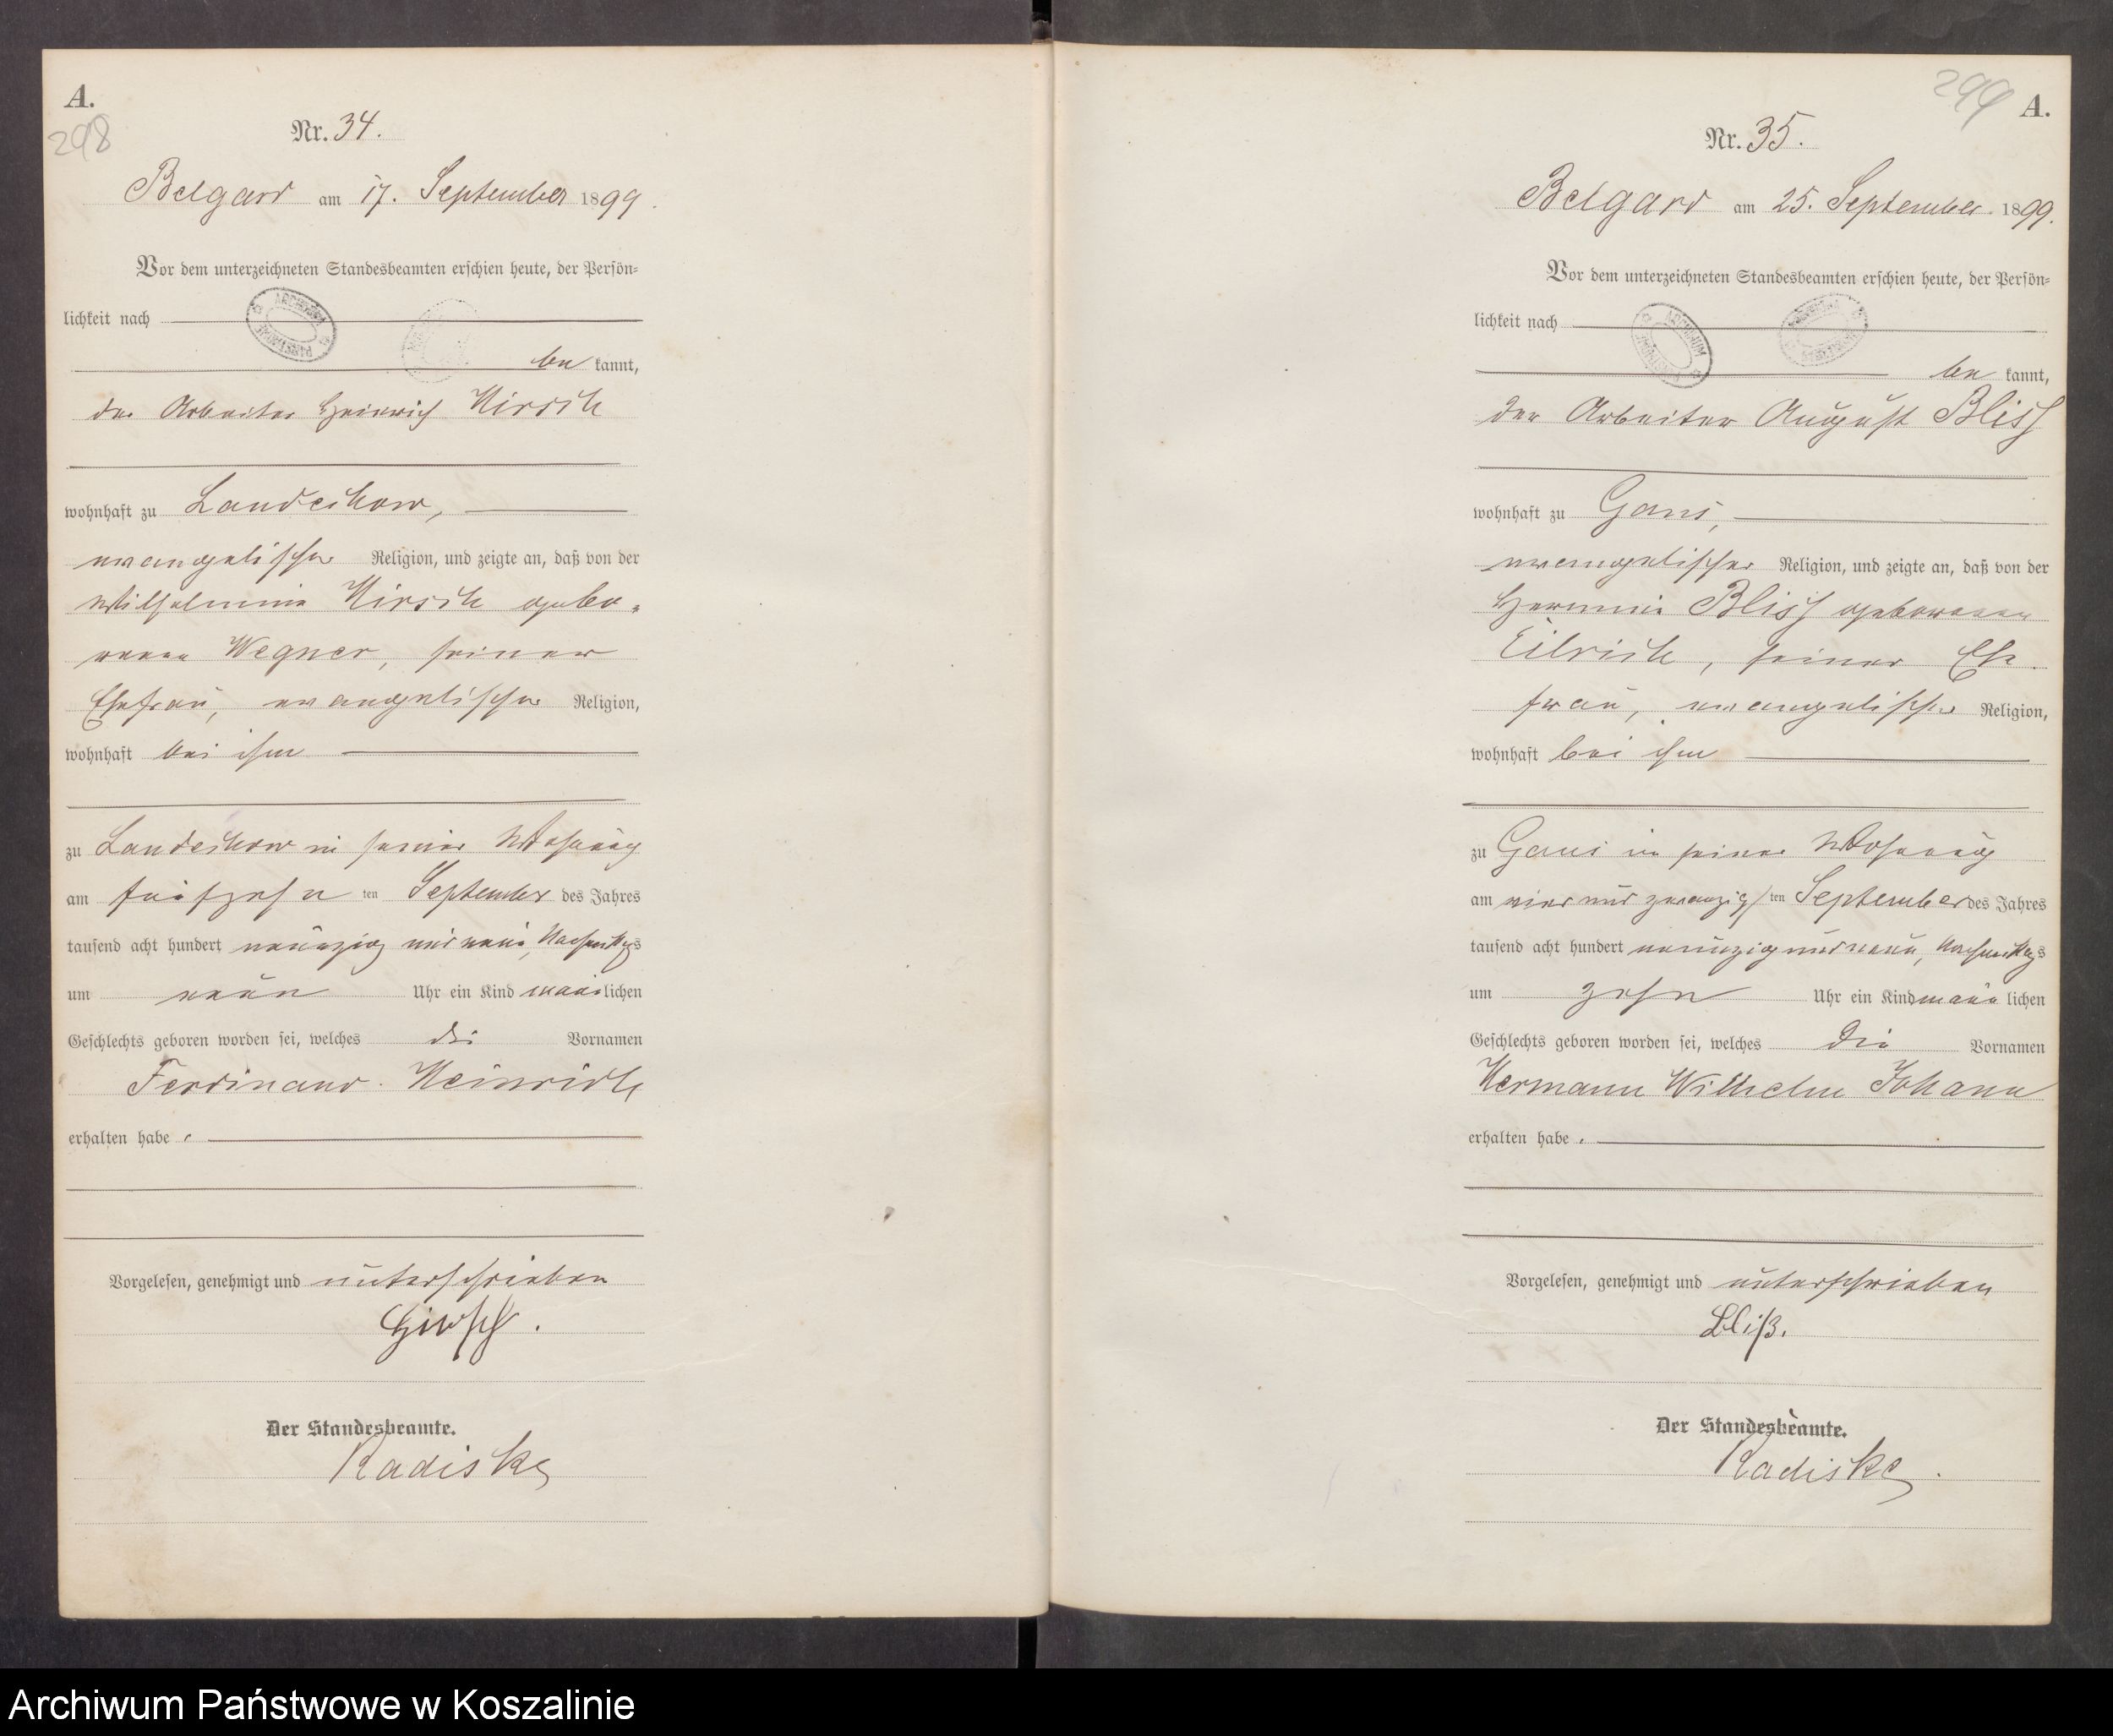 A.
298
Nr. 34.
Belgard am 17. September 1899.
Vor dem unterzeichneten Standesbeamten erschien heute, der Persön-
lichkeit nach
be kannt,
der Arbeiter Heinrich Hirsch
wohnhaft zu Landechow,
evangelischer Religion, und zeigte an, daß von der
Wilhelmine Hirsch gebo-
renen Wegner, seiner
Ehefrau, evangelischer Religion,
wohnhaft bei ihm
zu Landechow in seiner Wohnung
am fünfzehn ten September des Jahres
tausend acht hundert neunzig und neun, Nachmittags
um neun Uhr ein Kind männlichen
Geschlechts geboren worden sei, welches die Vornamen
Ferdinand Heinrich
erhalten habe.
Vorgelesen, genehmigt und unterschrieben
Hirsch.
Der Standesbeamte.
Radiske
299
A.
Nr. 35.
Belgard am 25. September 1899.
Vor dem unterzeichneten Standesbeamten erschien heute, der Persön-
lichkeit nach
be kannt,
der Arbeiter August Bliß
wohnhaft zu Gans,
evangelischer Religion, und zeigte an, daß von der
Hermine Bliß geborenen
Eilrich, seiner Ehe-
frau, evangelischer Religion,
wohnhaft bei ihm
zu Gans in seiner Wohnung
am vier und zwanzigs ten September des Jahres
tausend acht hundert neunzig und neun, Nachmittags
um zehn Uhr ein Kind männlichen
Geschlechts geboren worden sei, welches die Vornamen
Hermann Wilhelm Johann
erhalten habe.
Vorgelesen, genehmigt und unterschrieben
Bliß.
Der Standesbeamte.
Radiske.
Archiwum Państwowe w Koszalinie